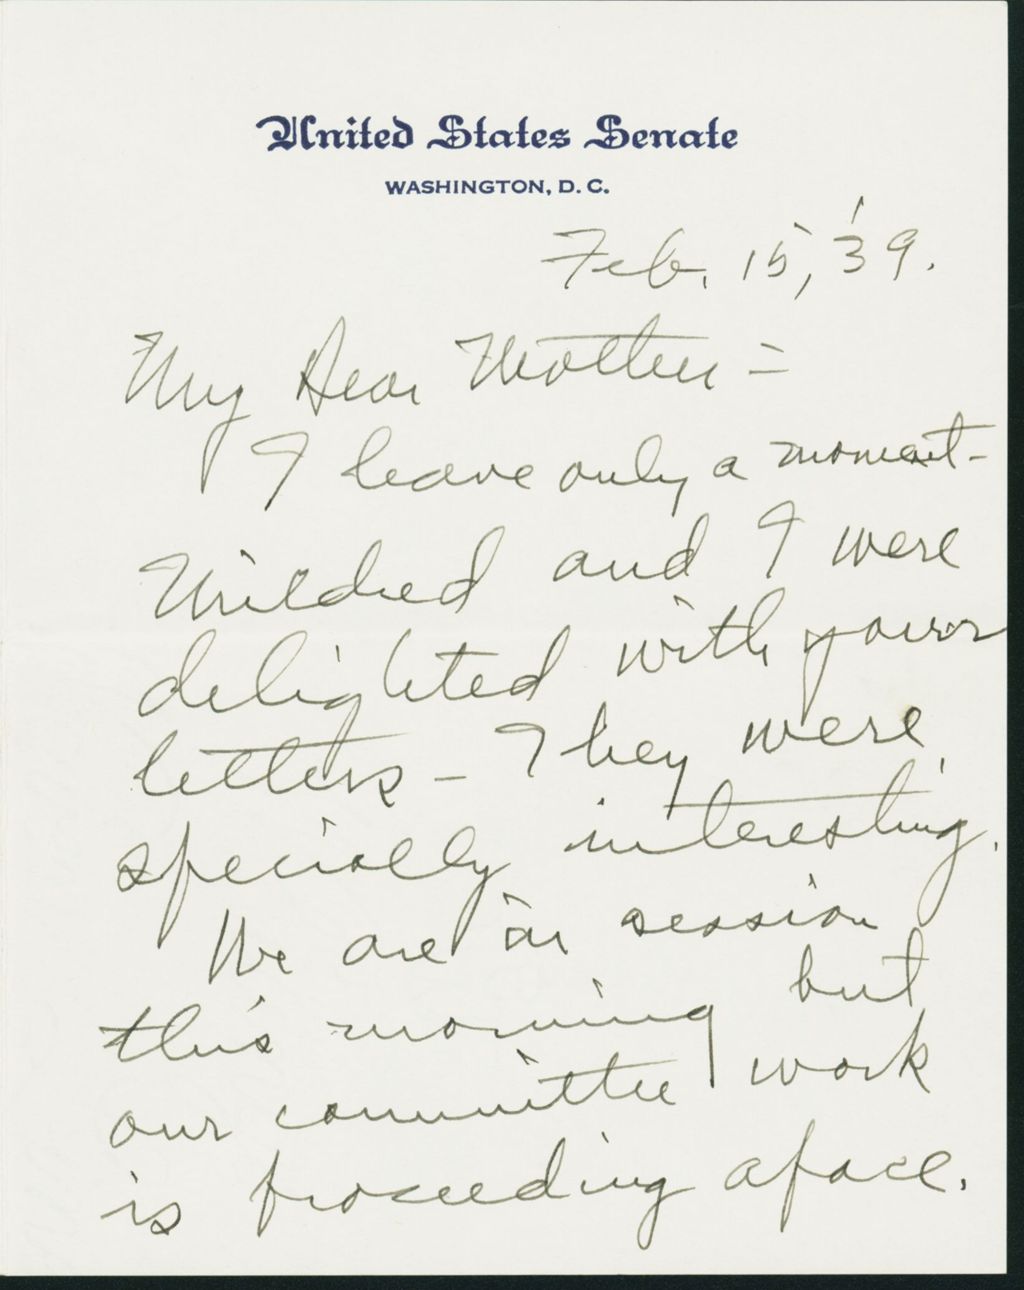 United States Senate
WASHINGTON, D. C.
Feb. 15, '39.
My Dear Mother =
I have only a moment -
Mildred and I were
delighted with your
letters - They were
specially interesting.
We are in session
this morning but
our committee work
is proceeding apace.